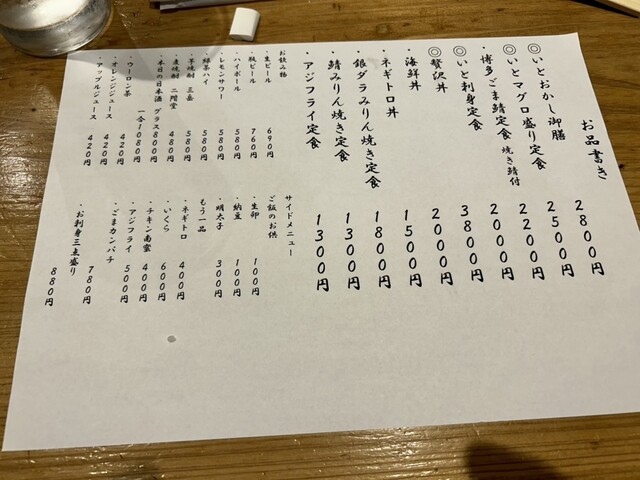 お品書き
◎いとおかし御膳 2800円
◎いとマグロ盛り定食 2500円
・博多ごま鯖定食 焼き鯖付 2200円
◎いと刺身定食 2000円
◎贅沢丼 3800円
・海鮮丼 2000円
・ネギトロ丼 1500円
・銀ダラみりん焼き定食 1800円
・鯖みりん焼き定食 1300円
・アジフライ定食 1300円
お飲み物
・生ビール 690円
・瓶ビール 760円
・ハイボール 580円
・レモンサワー 580円
・緑茶ハイ 580円
・芋焼酎 三岳 580円
・麦焼酎 二階堂 480円
・本日の日本酒 グラス800円
一合1080円
・ウーロン茶 420円
・オレンジジュース 420円
・アップルジュース 420円
サイドメニュー
ご飯のお供
・生卵 100円
・納豆 100円
・明太子 300円
もう一品
・ネギトロ 400円
・いくら 600円
・チキン南蛮 400円
・アジフライ 500円
・ごまカンパチ 780円
・お刺身三点盛り 880円